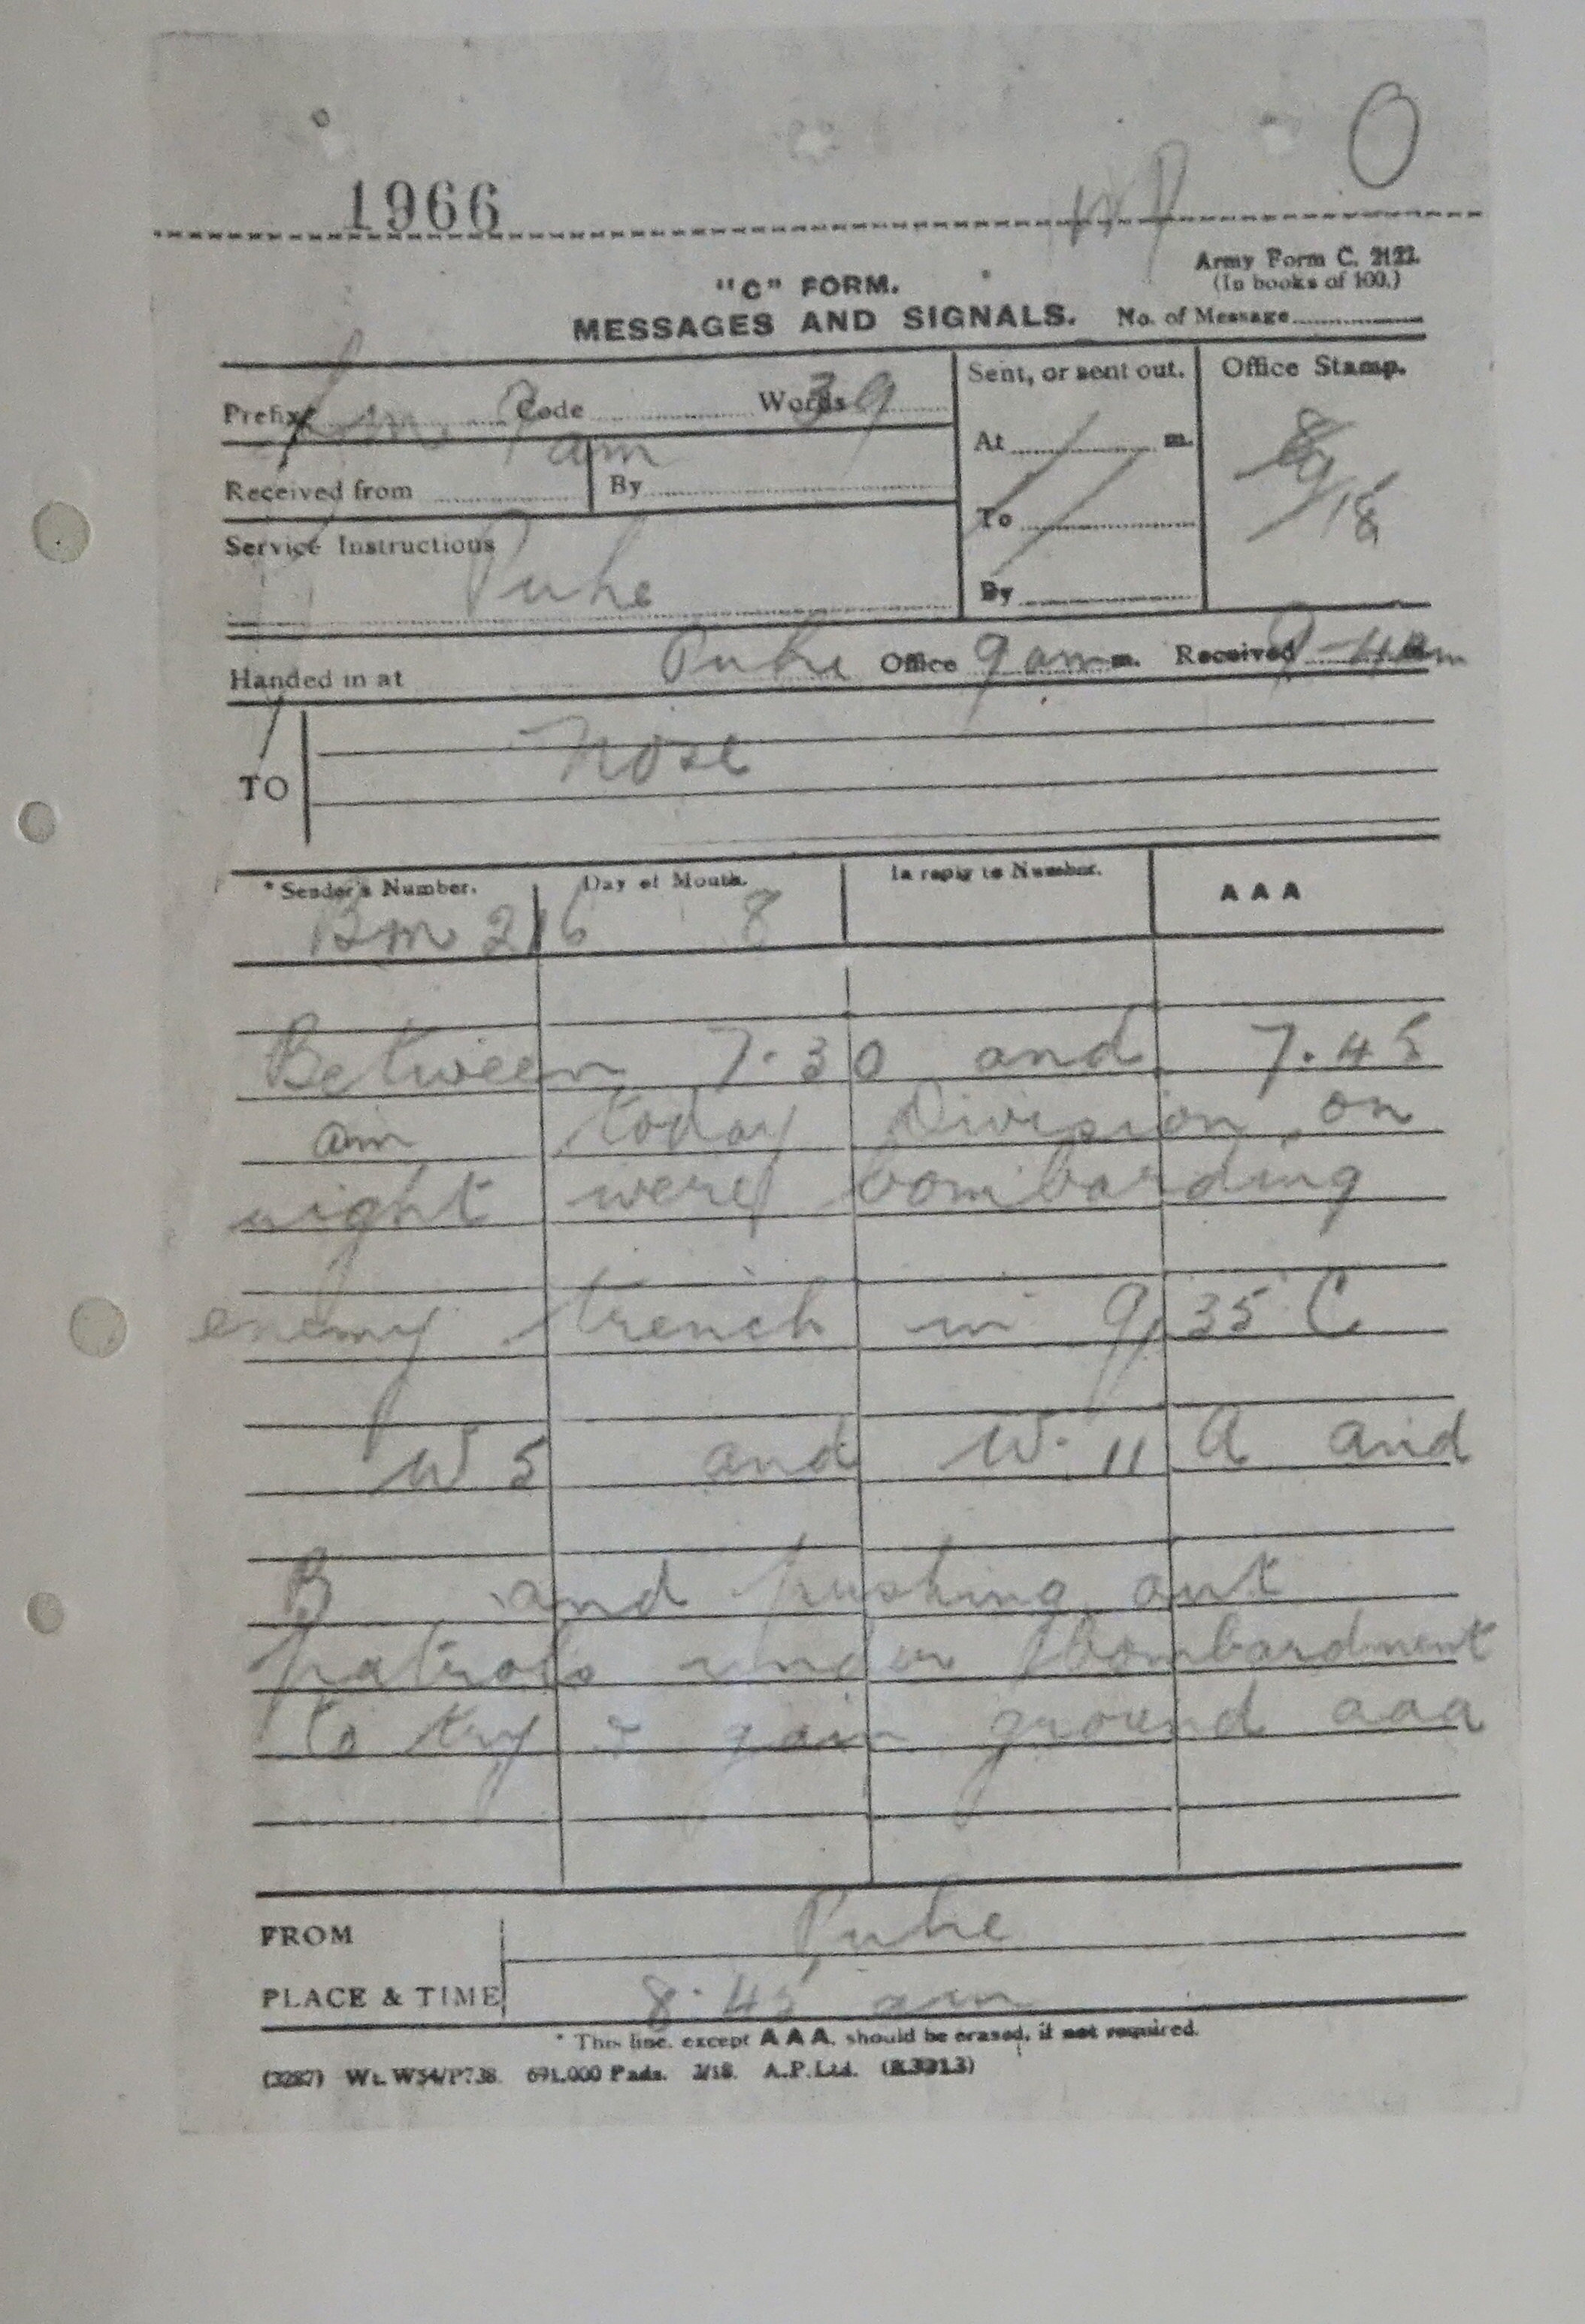 O
1966
Army Form C. 2122.
(In books of 100.)
"C" FORM.
MESSAGES AND SIGNALS. No. of Message
Prefix Sm Code Words 39
Sent, or sent out. Office Stamp.
9 am
Received from By
At m.
8/9/18
To
Service Instructions
Puhe
By
Handed in at Puhe Office 9 am m. Received
TO Nose
* Sender's Number. Day of Month. In reply to Number. AAA
Bm 216 8
Between 7.30 and 7.45
am today Division on
right were bombarding
enemy trench in Q 35 C
W 5 and W. 11 A and
B and pushing out
patrols under bombardment
to try & gain ground aaa
FROM Puhe
PLACE & TIME 8.45 am
* This line, except AAA, should be erased, if not required.
(3287) Wt. W54/P738. 691,000 Pads. 3/18. A.P.Ltd.